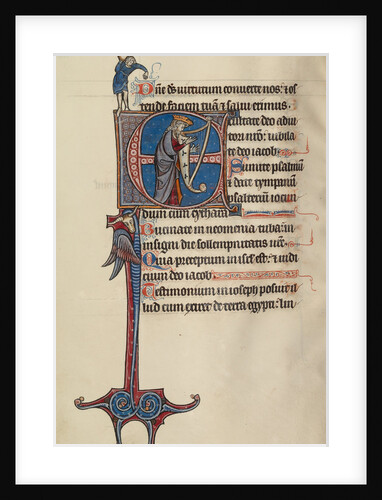 Dn̄e ds̄ uirtutum conuerte nos: ⁊ os
tende faciem tuā ⁊ salui erimus.
E xultate deo adiu
tori nr̄o: iubila
te deo iacob.
Sumite psalmū
⁊ date tympanū
psalterium iocun
dum cum cythara.
Bucinate in neomenia tuba: in
insigni die sollempnitatis ur̄e.
Quia preceptum in isrl̄ est: ⁊ iudi
cium deo iacob.
Testimonium in ioseph posuit il
lud cum exiret de terra egypti: lin